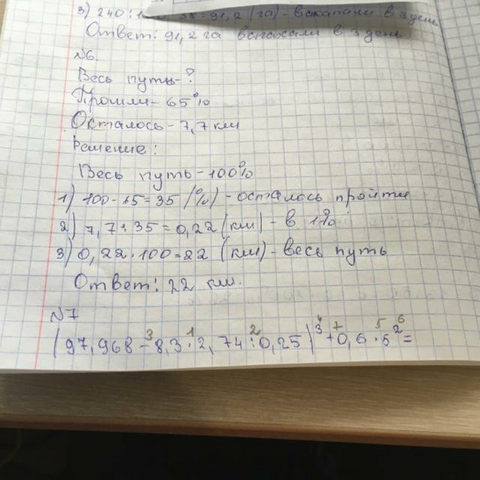 3) 240 : 1 38 = 91,2 (га) - вспахали в 3 день
Ответ: 91,2 га вспахали в 3 день
№6.
Весь путь - ?
Прошли - 65%
Осталось - 7,7 км
Решение:
Весь путь - 100%
1) 100 - 65 = 35 (%) - осталось пройти
2) 7,7 : 35 = 0,22 (км) - в 1%
3) 0,22 · 100 = 22 (км) - весь путь
Ответ: 22 км.
№7
(97,968 - 8,3 · 2,74 : 0,25)³ + 0,6 · 5² =